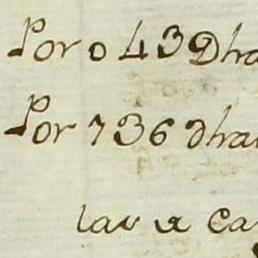 Por 0 43 Dha
Por 736 dha
lav a Ca